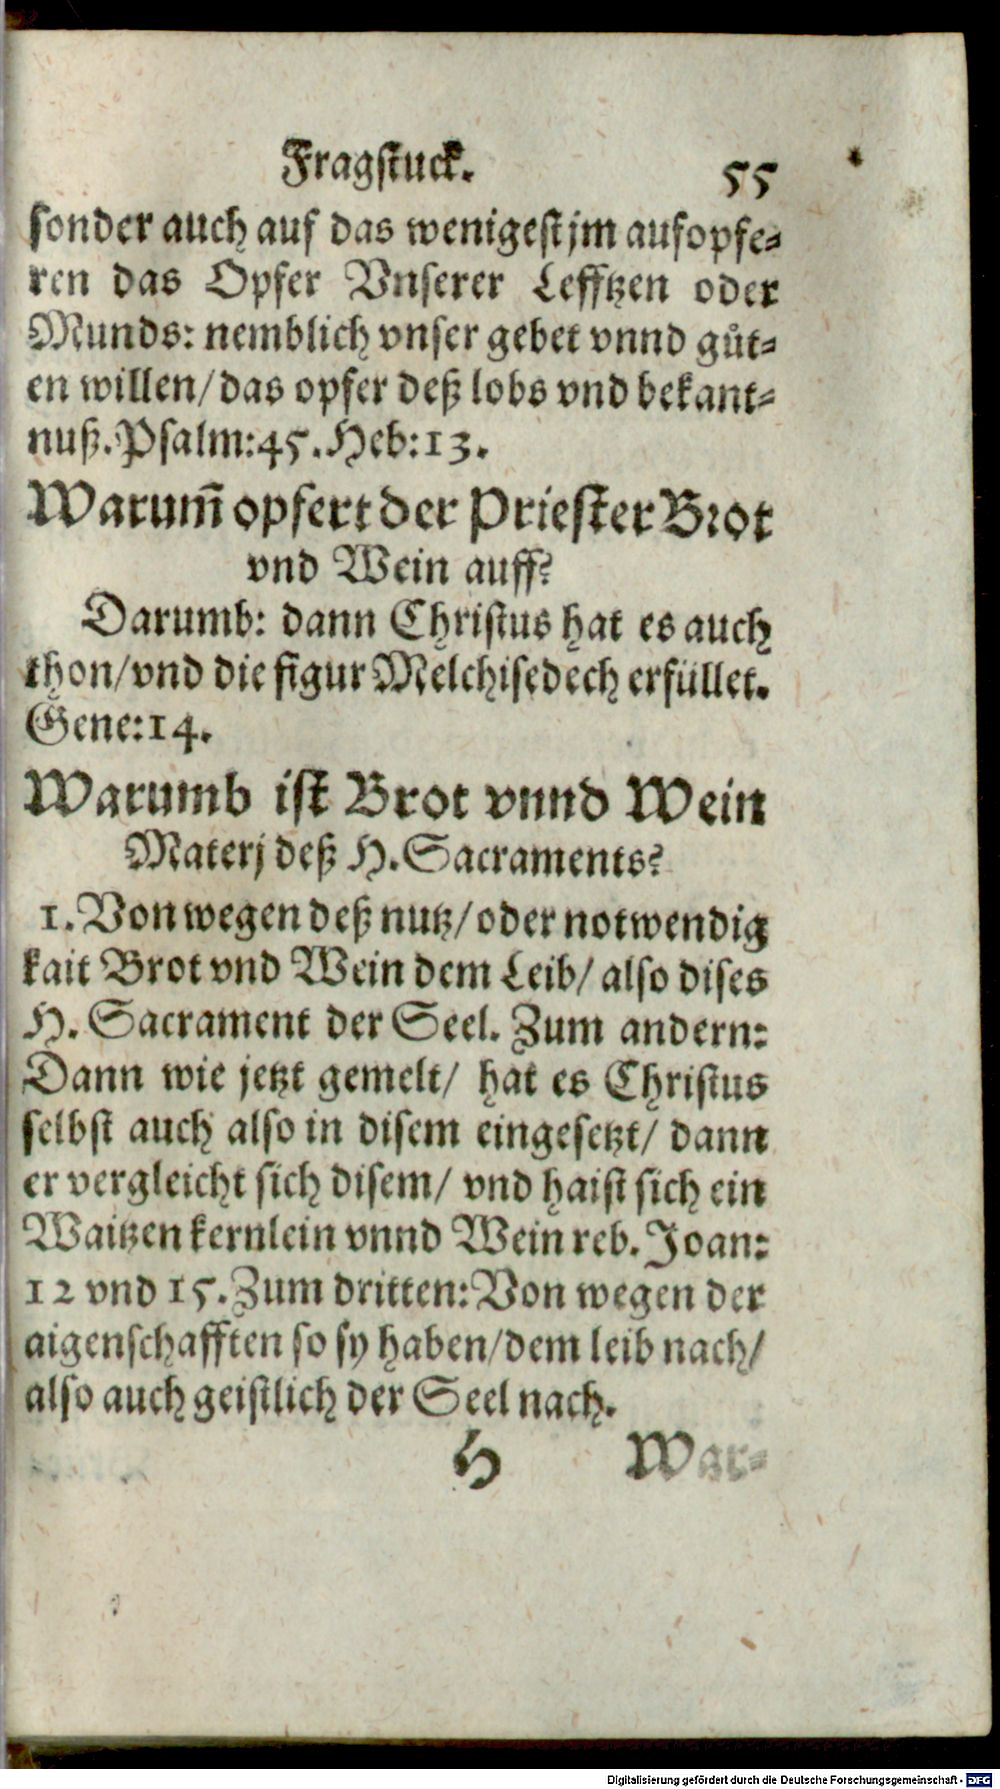 Fragstuck. 55
sonder auch auf das wenigest jm aufopfe-
ren das Opfer Vnserer Lefftzen oder
Munds: nemblich vnser gebet vnnd gůt-
en willen/ das opfer deß lobs vnd bekant-
nuß. Psalm: 45. Heb: 13.
Warum̄ opfert der Priester Brot
vnd Wein auff?
Darumb: dann Christus hat es auch
thon/ vnd die figur Melchisedech erfüllet.
Gene: 14.
Warumb ist Brot vnnd Wein
Materj deß H. Sacraments?
1. Von wegen deß nutz/ oder notwendig
kait Brot vnd Wein dem Leib/ also dises
H. Sacrament der Seel. Zum andern:
Dann wie jetzt gemelt/ hat es Christus
selbst auch also in disem eingesetzt/ dann
er vergleicht sich disem/ vnd haist sich ein
Waitzen kernlein vnnd Wein reb. Joan:
12 vnd 15. Zum dritten: Von wegen der
aigenschafften so sy haben/ dem leib nach/
also auch geistlich der Seel nach.
H War-
Digitalisierung gefördert durch die Deutsche Forschungsgemeinschaft - DFG